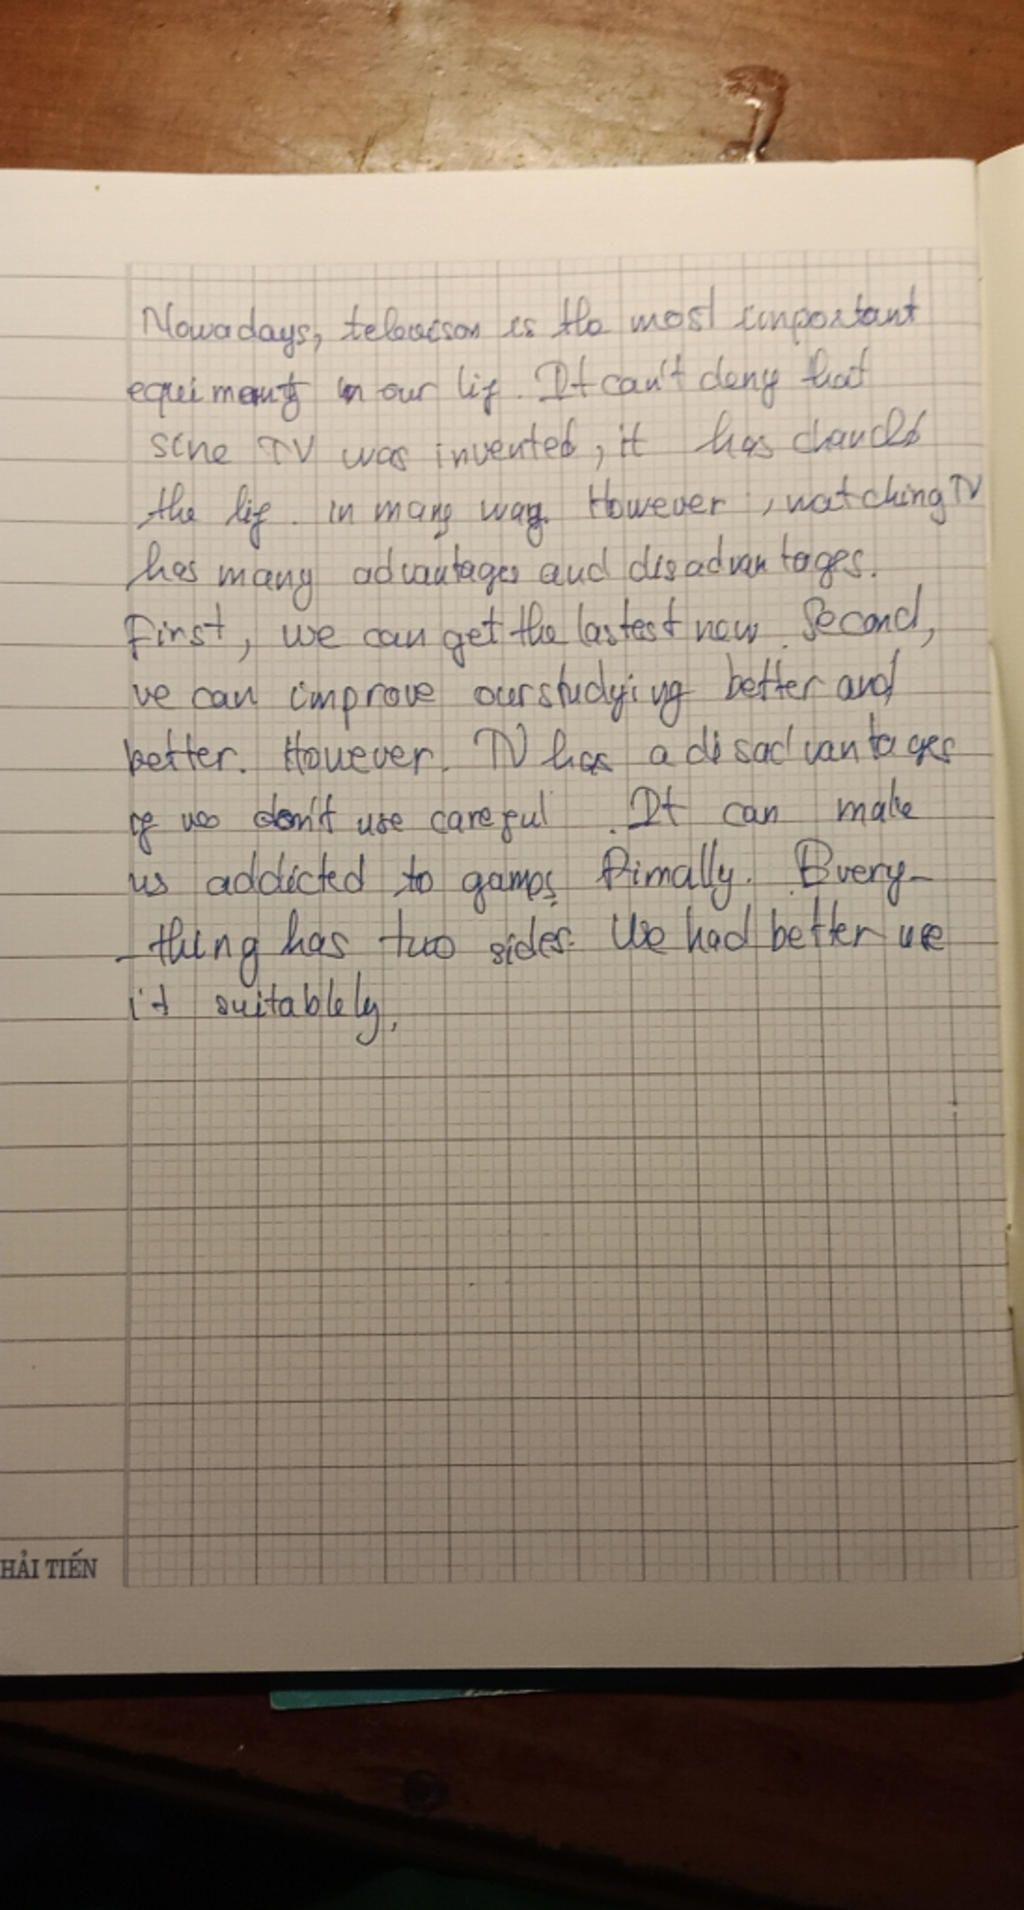 Nowadays, televison is the most important
equiment in our lif. It can't deny that
sine TV was invented, it has
the lif. in many way. However, watching TV
has many advantages and disadvantages.
First, we can get the lastest new. Second,
we can improve our studying better and
better. However. TV has a disadvantages
if we don't use careful. It can make
us addicted to games. Finally. Every-
thing has two sides. We had better use
it suitablely.
HẢI TIẾN